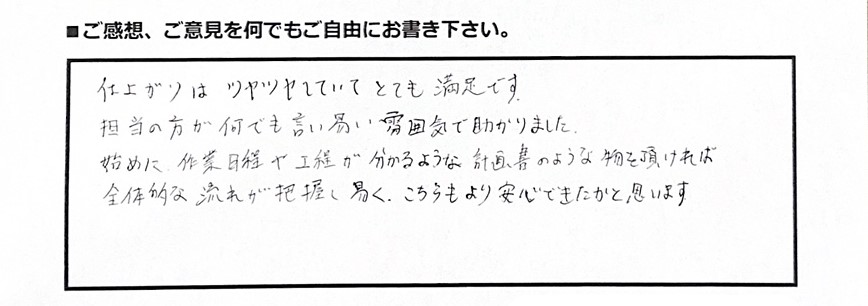 ■ご感想、ご意見を何でもご自由にお書き下さい。
仕上がりは ツヤツヤしていて とても 満足です。
担当の方が何でも言い易い雰囲気で助かりました。
始めに、作業日程や工程が分かるような計画書のような物を頂ければ
全体的な流れが把握し易く、こちらもより安心できたかと思います